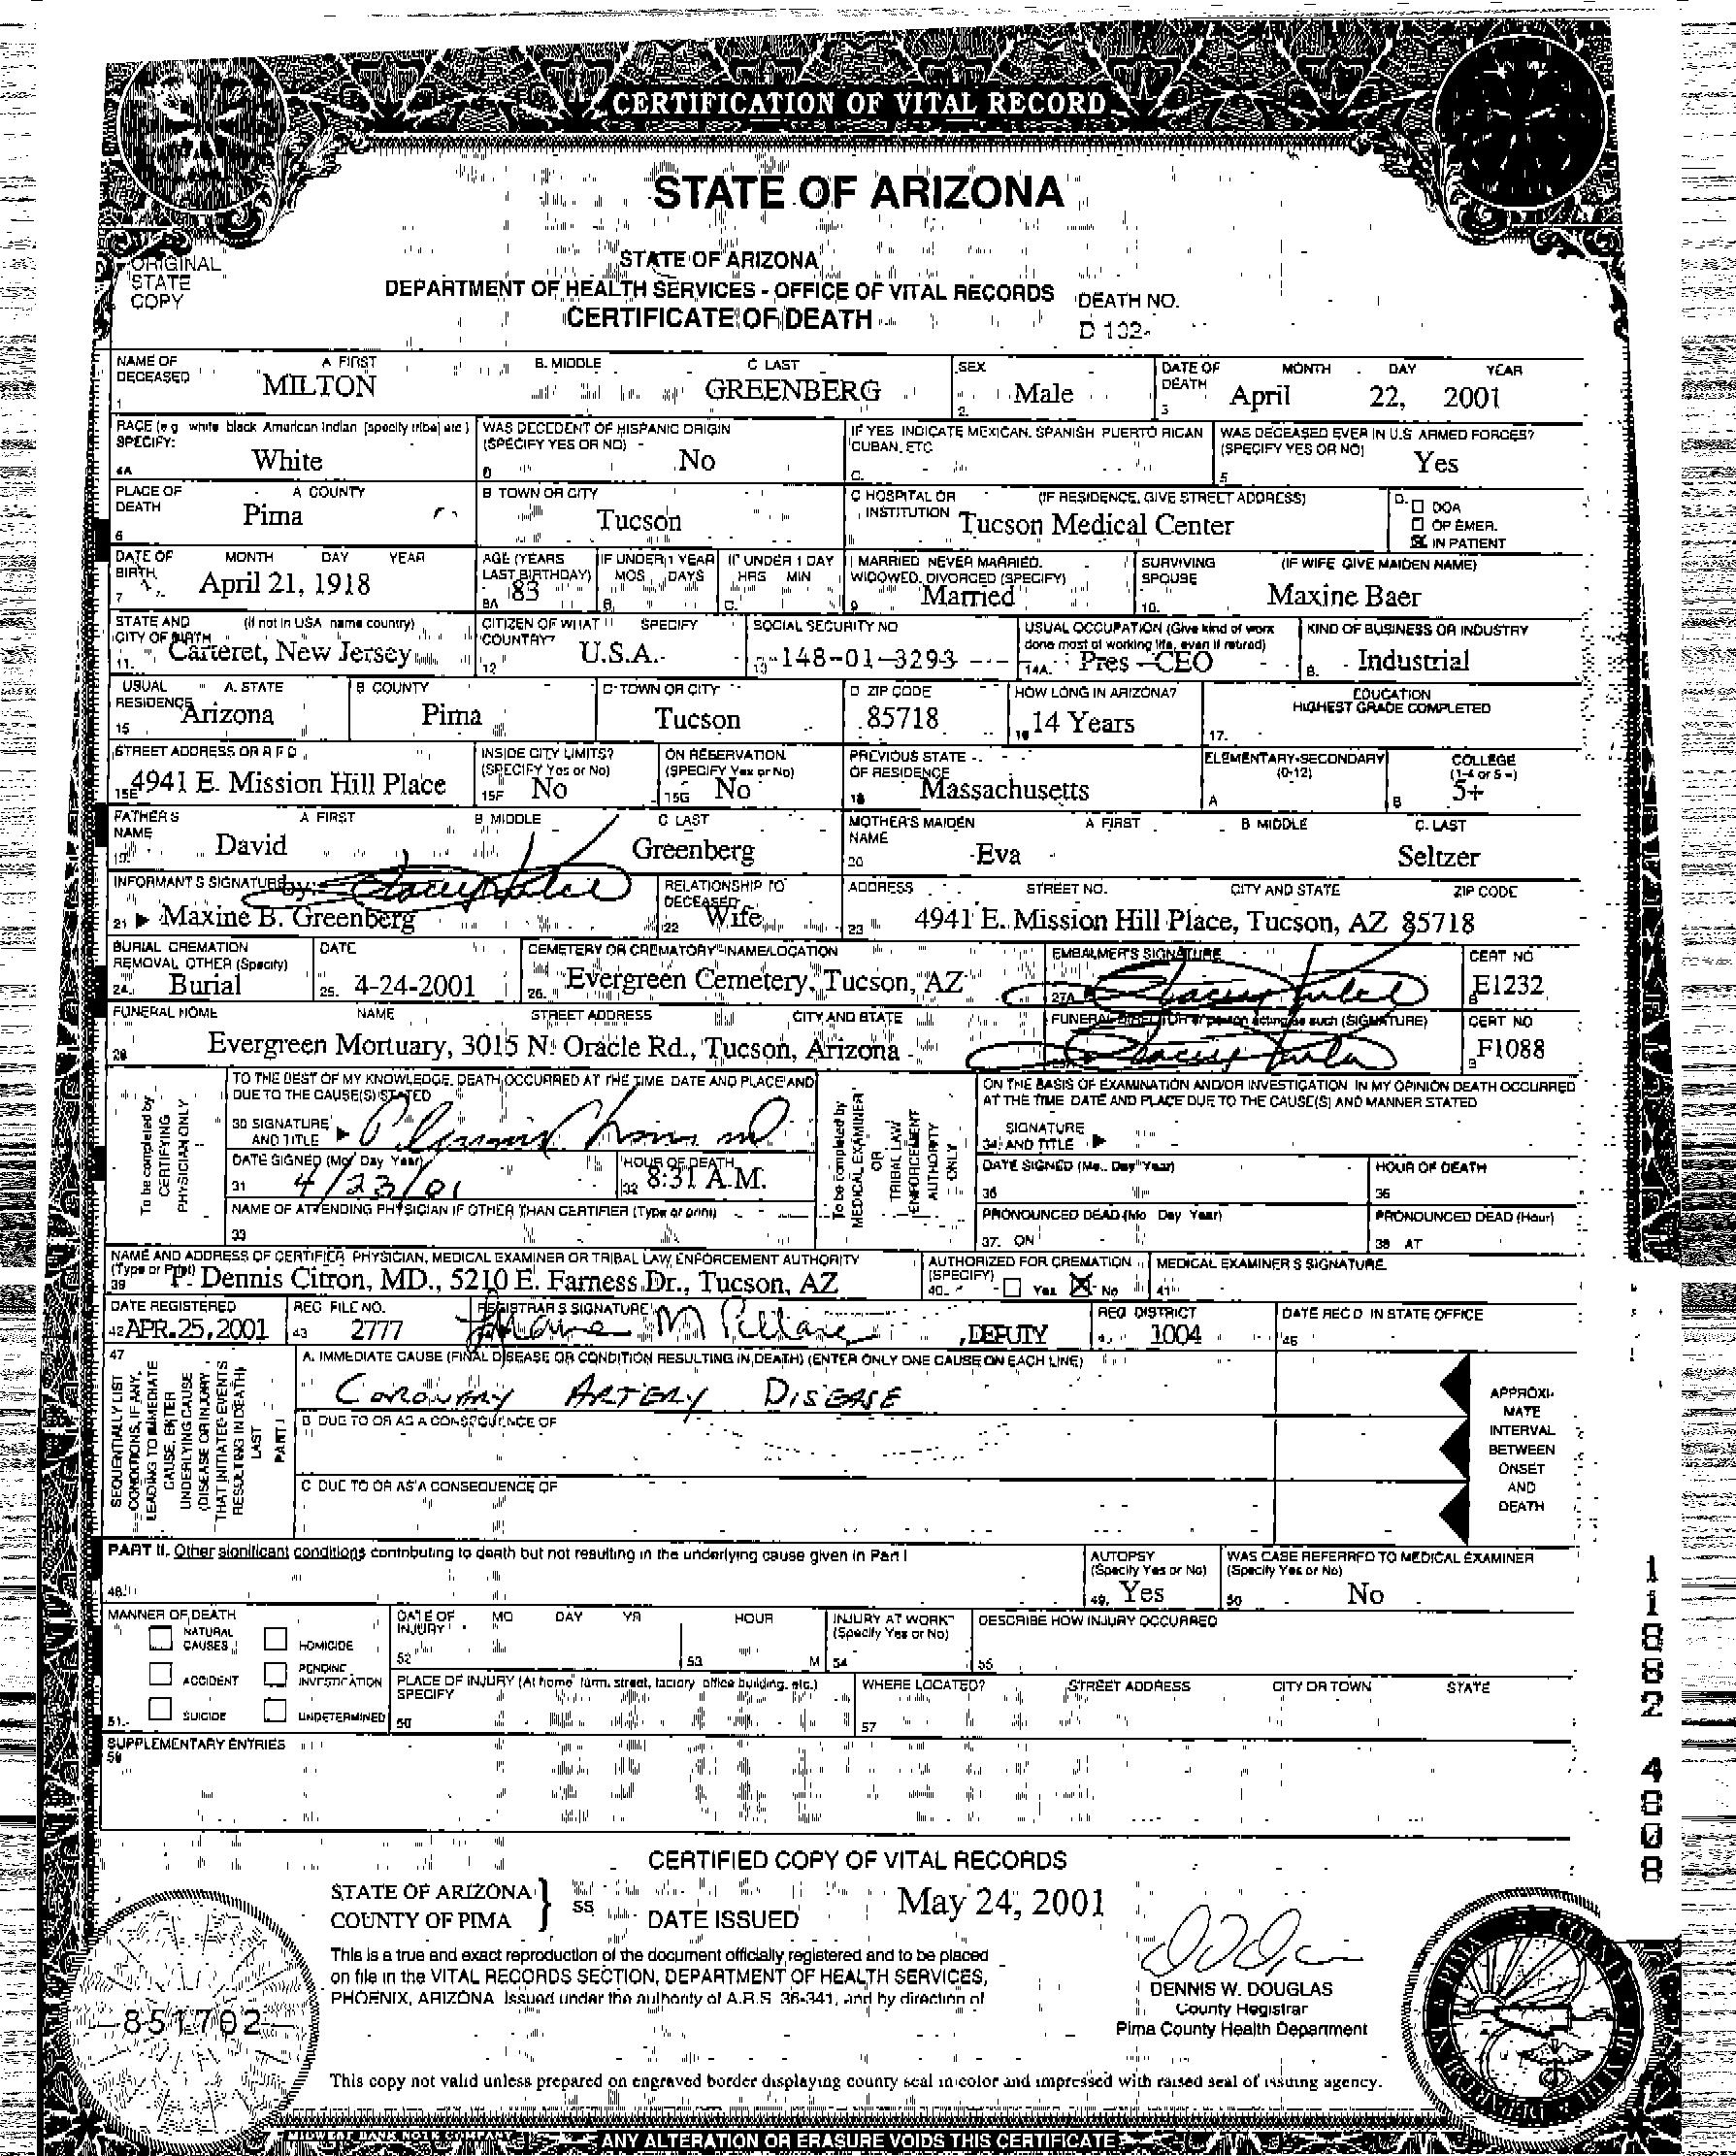 CERTIFICATION OF VITAL RECORD
STATE OF ARIZONA
ORIGINAL
STATE
COPY
STATE OF ARIZONA
DEPARTMENT OF HEALTH SERVICES - OFFICE OF VITAL RECORDS
CERTIFICATE OF DEATH
DEATH NO.
D 102-
NAME OF DECEASED A FIRST B. MIDDLE C LAST SEX DATE OF DEATH MONTH DAY YEAR
1 MILTON GREENBERG 2. Male 3 April 22, 2001
RACE (e g white black American Indian (specify tribe) etc) SPECIFY: WAS DECEDENT OF HISPANIC ORIGIN (SPECIFY YES OR NO) IF YES INDICATE MEXICAN, SPANISH PUERTO RICAN CUBAN, ETC WAS DECEASED EVER IN U.S ARMED FORCES? (SPECIFY YES OR NO)
4A White No C. 5 Yes
PLACE OF DEATH A COUNTY B TOWN OR CITY C HOSPITAL OR INSTITUTION (IF RESIDENCE, GIVE STREET ADDRESS) D. DOA
OP EMER.
IN PATIENT
6 Pima Tucson Tucson Medical Center
DATE OF BIRTH MONTH DAY YEAR AGE (YEARS LAST BIRTHDAY) IF UNDER 1 YEAR MOS DAYS IF UNDER 1 DAY HRS MIN MARRIED NEVER MARRIED, WIDOWED, DIVORCED (SPECIFY) SURVIVING SPOUSE (IF WIFE GIVE MAIDEN NAME)
7 April 21, 1918 8A 83 B. C. 9 Married 10. Maxine Baer
STATE AND CITY OF BIRTH (if not in USA name country) CITIZEN OF WHAT COUNTRY? SPECIFY SOCIAL SECURITY NO USUAL OCCUPATION (Give kind of work done most of working life, even if retired) KIND OF BUSINESS OR INDUSTRY
11. Carteret, New Jersey 12 U.S.A. 13 148-01-3293 14A. Pres - CEO B. Industrial
USUAL RESIDENCE A. STATE B COUNTY C TOWN OR CITY D ZIP CODE HOW LONG IN ARIZONA? EDUCATION HIGHEST GRADE COMPLETED
15 Arizona Pima Tucson 85718 16 14 Years 17.
STREET ADDRESS OR R F D INSIDE CITY LIMITS? (SPECIFY Yes or No) ON RESERVATION (SPECIFY Yes or No) PREVIOUS STATE OF RESIDENCE ELEMENTARY-SECONDARY (0-12) COLLEGE (1-4 or 5+)
15E 4941 E. Mission Hill Place 15F No 15G No 18 Massachusetts A B 5+
FATHERS NAME A FIRST B MIDDLE C LAST MOTHER'S MAIDEN NAME A FIRST B MIDDLE C. LAST
19. David Greenberg 20 Eva Seltzer
INFORMANT S SIGNATURE by: RELATIONSHIP TO DECEASED ADDRESS STREET NO. CITY AND STATE ZIP CODE
21 Maxine B. Greenberg 22 Wife 23 4941 E. Mission Hill Place, Tucson, AZ 85718
BURIAL CREMATION REMOVAL OTHER (Specify) DATE CEMETERY OR CREMATORY - NAME/LOCATION EMBALMER'S SIGNATURE CERT NO
24. Burial 25. 4-24-2001 26. Evergreen Cemetery, Tucson, AZ 27A B E1232
FUNERAL HOME NAME STREET ADDRESS CITY AND STATE FUNERAL DIRECTOR or person acting as such (SIGNATURE) CERT NO
28 Evergreen Mortuary, 3015 N. Oracle Rd., Tucson, Arizona B F1088
To be completed by CERTIFYING PHYSICIAN ONLY
TO THE BEST OF MY KNOWLEDGE, DEATH OCCURRED AT THE TIME DATE AND PLACE AND DUE TO THE CAUSE(S) STATED
30 SIGNATURE AND TITLE
DATE SIGNED (Mo Day Year) HOUR OF DEATH
31 4/23/01 32 8:31 A.M.
NAME OF ATTENDING PHYSICIAN IF OTHER THAN CERTIFIER (Type or print)
33
To be completed by MEDICAL EXAMINER OR TRIBAL LAW ENFORCEMENT AUTHORITY ONLY
ON THE BASIS OF EXAMINATION AND/OR INVESTIGATION IN MY OPINION DEATH OCCURRED AT THE TIME DATE AND PLACE DUE TO THE CAUSE(S) AND MANNER STATED
SIGNATURE
34. AND TITLE
DATE SIGNED (Mo. Day Year) HOUR OF DEATH
35 36
PRONOUNCED DEAD (Mo Day Year) PRONOUNCED DEAD (Hour)
37. ON 38 AT
NAME AND ADDRESS OF CERTIFIER PHYSICIAN, MEDICAL EXAMINER OR TRIBAL LAW ENFORCEMENT AUTHORITY (Type or Print) AUTHORIZED FOR CREMATION (SPECIFY) MEDICAL EXAMINER S SIGNATURE
39 P. Dennis Citron, MD., 5210 E. Farness Dr., Tucson, AZ 40. Yes No 41
DATE REGISTERED REG FILE NO. REGISTRAR S SIGNATURE REG DISTRICT DATE REC D IN STATE OFFICE
42 APR. 25, 2001 43 2777 , DEPUTY 1004 46
47 SEQUENTIALLY LIST CONDITIONS, IF ANY, LEADING TO IMMEDIATE CAUSE, ENTER UNDERLYING CAUSE (DISEASE OR INJURY THAT INITIATED EVENTS RESULTING IN DEATH) LAST PART I
A. IMMEDIATE CAUSE (FINAL DISEASE OR CONDITION RESULTING IN DEATH) (ENTER ONLY ONE CAUSE ON EACH LINE)
CORONARY ARTERY DISEASE
B DUE TO OR AS A CONSEQUENCE OF
C DUE TO OR AS A CONSEQUENCE OF
APPROXI-
MATE
INTERVAL
BETWEEN
ONSET
AND
DEATH
PART II. Other significant conditions contributing to death but not resulting in the underlying cause given in Part I AUTOPSY (Specify Yes or No) WAS CASE REFERRED TO MEDICAL EXAMINER (Specify Yes or No)
48. 49. Yes 50 No
MANNER OF DEATH
NATURAL CAUSES HOMICIDE
ACCIDENT PENDING INVESTIGATION
51. SUICIDE UNDETERMINED
DATE OF INJURY MO DAY YR HOUR INJURY AT WORK? (Specify Yes or No) DESCRIBE HOW INJURY OCCURRED
52 53 M 54 55
PLACE OF INJURY (At home farm, street, factory office building, etc.) SPECIFY WHERE LOCATED? STREET ADDRESS CITY OR TOWN STATE
56 57
SUPPLEMENTARY ENTRIES
58
11882 4808
CERTIFIED COPY OF VITAL RECORDS
STATE OF ARIZONA
COUNTY OF PIMA } SS
DATE ISSUED May 24, 2001
This is a true and exact reproduction of the document officially registered and to be placed
on file in the VITAL RECORDS SECTION, DEPARTMENT OF HEALTH SERVICES,
PHOENIX, ARIZONA Issued under the authority of A.R.S 36-341, and by direction of
DENNIS W. DOUGLAS
County Registrar
Pima County Health Department
851702
PIMA COUNTY HEALTH DEPARTMENT
This copy not valid unless prepared on engraved border displaying county seal in color and impressed with raised seal of issuing agency.
MIDWEST BANK NOTE COMPANY
ANY ALTERATION OR ERASURE VOIDS THIS CERTIFICATE